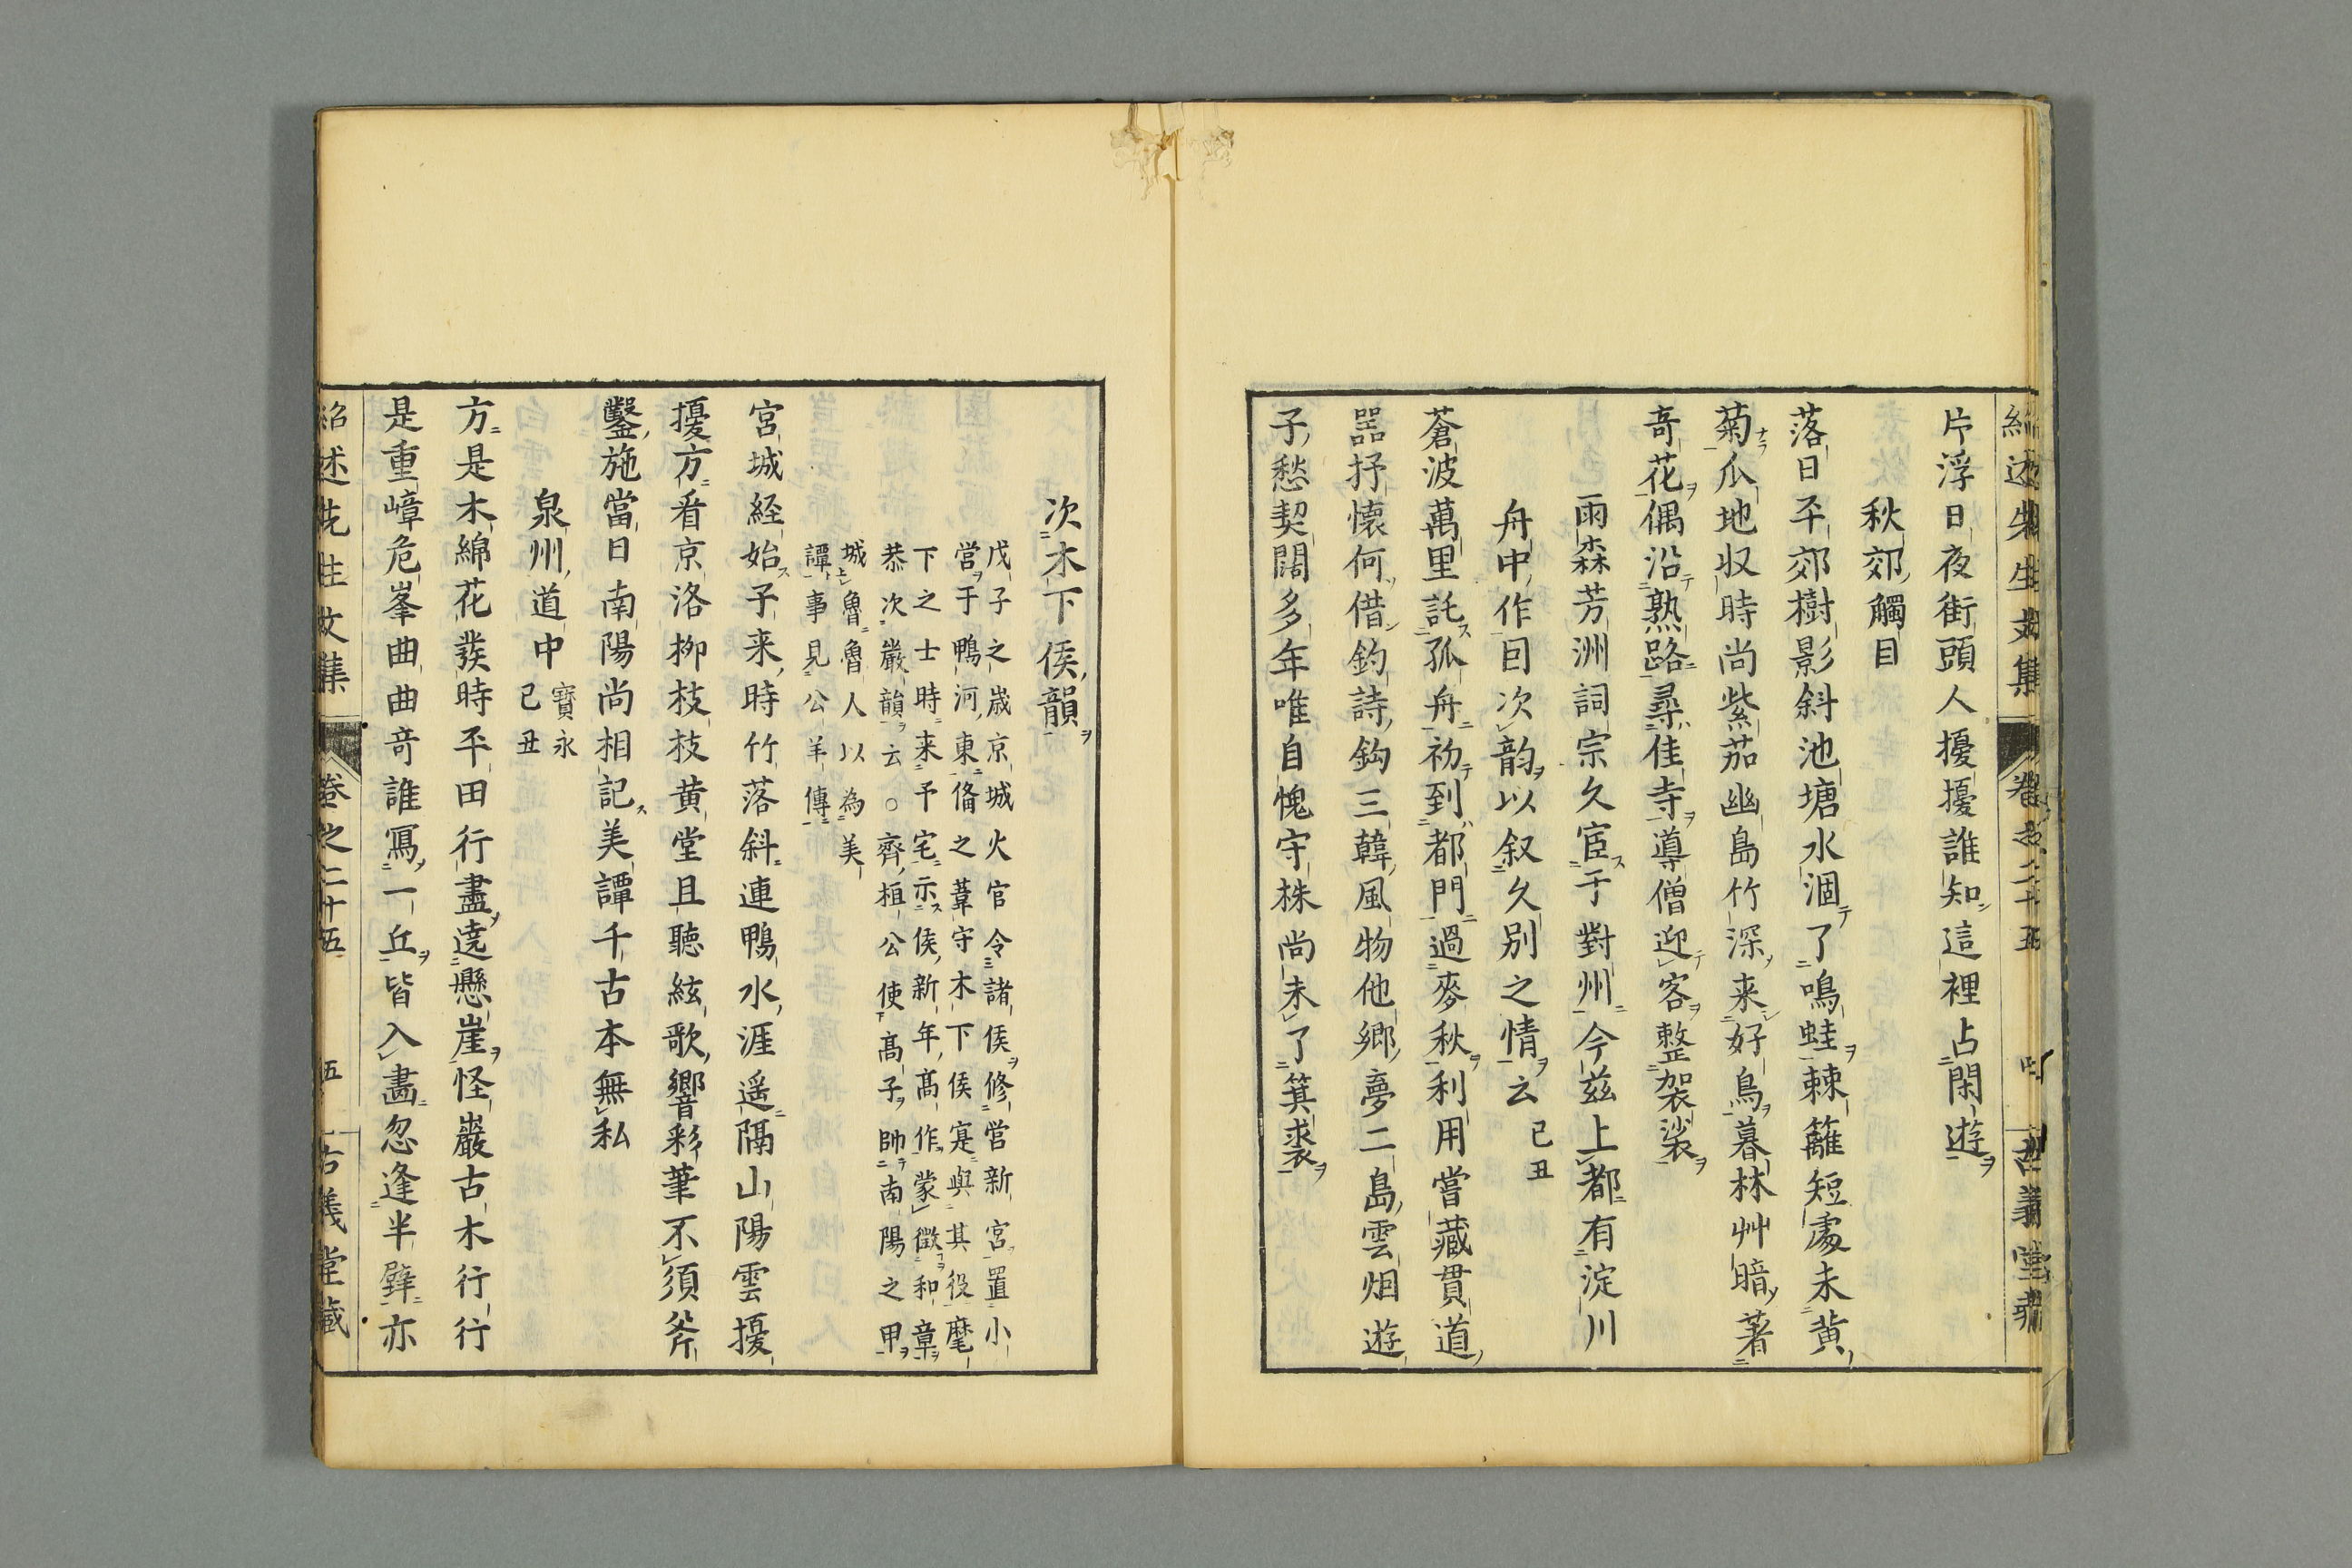 紹述先生文集 卷之二十五 古義堂藏
片浮日夜街頭人擾擾誰知這裡占閑遊
秋郊觸目
落日平郊樹影斜池塘水涸了鳴蛙棘籬短處未黄
菊瓜地収時尚紫茄幽島竹深来好鳥暮林艸暗著
奇花偶沿熟路尋佳寺導僧迎客整袈裟
雨森芳洲詞宗久宦于對州今茲上都有淀川
舟中作因次韵以叙久別之情云 己丑
蒼波萬里託孤舟初到都門過麥秋利用嘗藏貫道
噐抒懐何借釣詩鈎三韓風物他郷夢二島雲烟遊
子愁契闊多年唯自愧守株尚未了箕裘
次木下侯韻
戊子之歳京城火官令諸侯修営新宮置小
営于鴨河東俻之葦守木下侯寔與其役麾
下之士時来予宅示侯新年髙作蒙徴和章
恭次嚴韻云○齊桓公使髙子帥南陽之甲
城魯魯人以為美
譚事見公羊傳
宮城経始子来時竹落斜連鴨水涯遥隔山陽雲擾
擾方看京洛柳枝枝黄堂且聽絃歌響彩筆不須斧
鑿施當日南陽尚相記美譚千古本無私
泉州道中 寶永己丑
方是木綿花發時平田行盡遶懸崖怪巖古木行行
是重嶂危峯曲曲奇誰冩一丘皆入畫忽逢半䦼亦
紹述先生文集 卷之二十五 五 古義堂藏